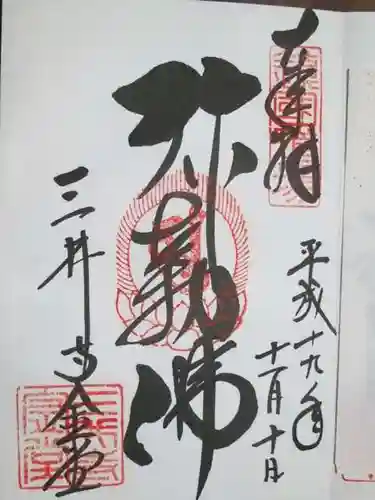 奉拝
平成十九年
十一月十日
弥勒佛
三井寺金堂